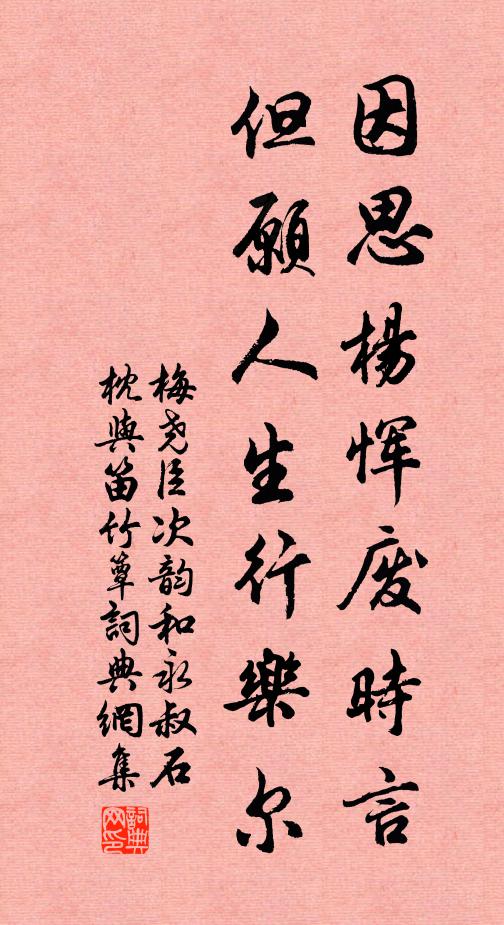 因思杨恽废時言
但願人生行樂尔
梅尧臣次韵和永叔石
枕與笛竹簟詞典網集
詞典
网印